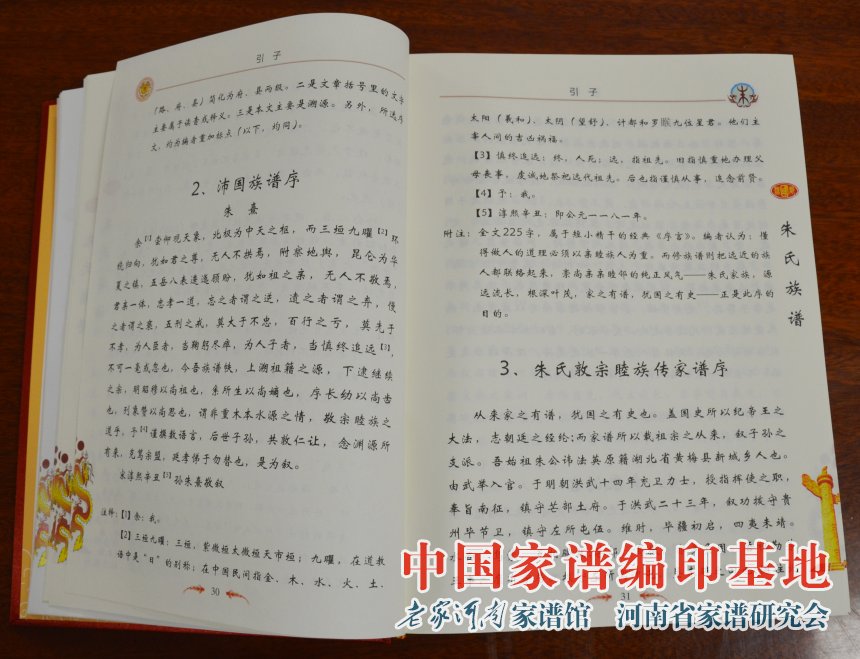 引子
(路、府、县)简化为府、县两级。二是文章括号里的文字
主要属于读音或释义。三是本文主要是溯源。另外，所选序
文，均为编者重加标点(以下，均同)。
2、沛国族谱序
朱熹
余【1】尝仰观天象，北极为中天之枢，而三垣九曜【2】环
绕归向，犹如君之尊，无人不拱焉，附察地舆，昆仑为华
夏之镇，五岳八表逶迤顾盼，犹如祖之亲，无人不敬焉，
君亲一体，忠孝一道，忘之者谓之逆，遗之者谓之弃，慢
之者谓之褻，五刑之戒，莫大于不忠，百行之亏，莫先于
不孝，为人臣者，当鞠躬尽瘁，为人子者，当慎终追远【3】，
不可一毫或忽也，今吾族谱牒，上溯祖籍之源，下逮继续
之宗，明昭穆以尚祖也，系所生以尚嫡也，序长幼以尚齿
也，列象赞以尚思也，谓非重木本水源之情，敬宗睦族之
道乎，予【4】谨撰数语言，后世子孙，共敦仁让，念渊源所
有来，克笃宗盟，延孝悌于勿替也，是为叙。
宋淳熙辛丑【5】孙朱熹敬叙
注释：【1】余：我。
【2】三垣九曜：三垣，紫微垣太微垣天市垣；九曜，在道教
语中是“日”的别称；在中国民间指金、木、水、火、土、
30
引子
朱
太阳(羲和)、太阴(望舒)、计都和罗睺九位星君。他们主
宰人间的吉凶祸福。
【3】慎终追远：终，人死；远，指祖先。旧指慎重地办理父
母丧事，虔诚地祭祀远代祖先。后也指谨慎从事，追念前贤。
【4】予：我。
【5】淳熙辛丑：即公元一一八一年。
附注：全文225字，属于短小精干的经典《序言》。编者认为：懂
得做人的道理必须以亲睦族人为重。而修族谱则把远近的族
人都联络起来，崇尚亲亲睦邻的纯正风气——朱氏家族，源
远流长，根深叶茂，家之有谱，犹国之有史——正是此序的
目的。
朱氏族谱
3、朱氏敦宗睦族传家谱序
从来家之有谱，犹国之有史也。盖国史所以纪帝王之
大法，志朝廷之经纶；而家谱所以载祖宗之从来，叙子孙之
支派。吾始祖朱公讳法英原籍湖北省黄梅县新城乡人也。
由武举入官。于明朝洪武十四年充卫力士，授指挥使之职，
奉旨南征，镇守芒部土府。于洪武二十三年，叙功拨守贵
州毕节卫，镇守左所屯伍。维时，毕疆初启，四夷未靖。
31
中国家谱编印基地
老家河南家谱馆 河南省家谱研究会